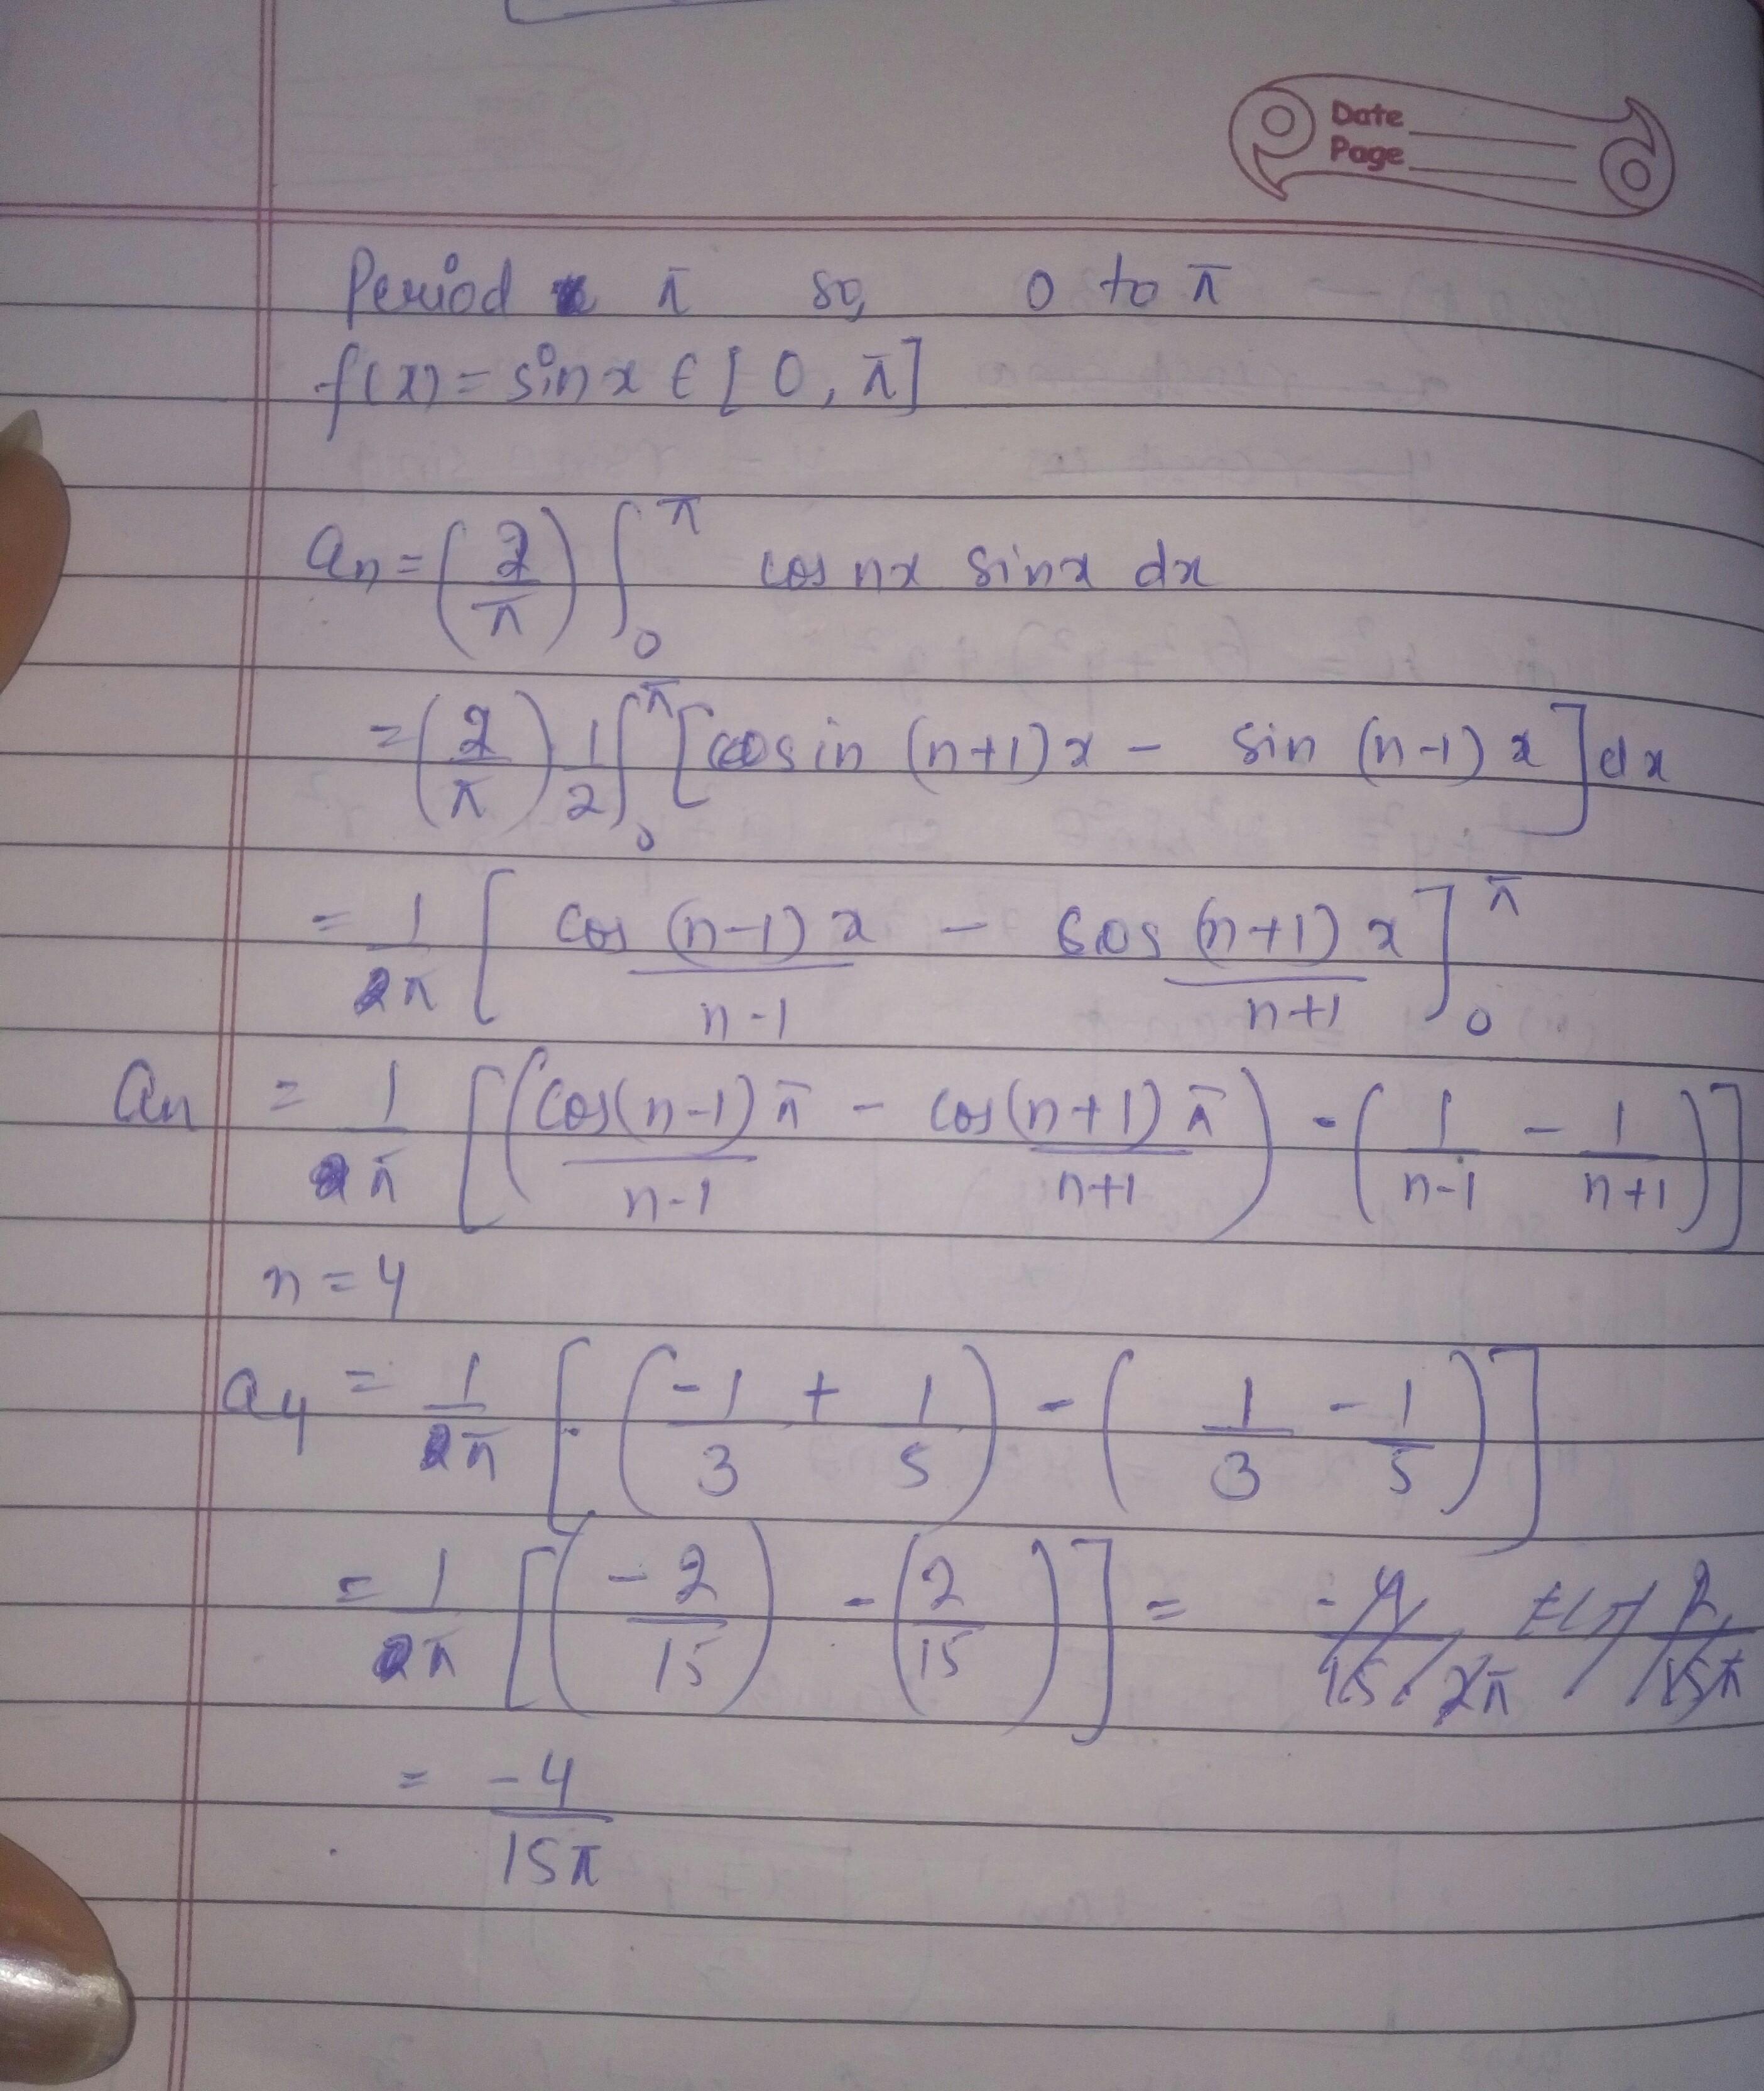 Date
Page
Period π so, 0 to π
f(x) = sin x ∈ [0, π]
an = (2/π) ∫₀^π cos nx sin x dx
= (2/π) 1/2 ∫₀^π [sin (n+1)x - sin (n-1)x] dx
= 1/π [cos (n-1)x / n-1 - cos (n+1)x / n+1]₀^π
an = 1/π [(cos(n-1)π / n-1 - cos(n+1)π / n+1) - (1/n-1 - 1/n+1)]
n = 4
a4 = 1/π [(-1/3 + 1/5) - (1/3 - 1/5)]
= 1/π [(-2/15) - (2/15)] =
= -4/15π